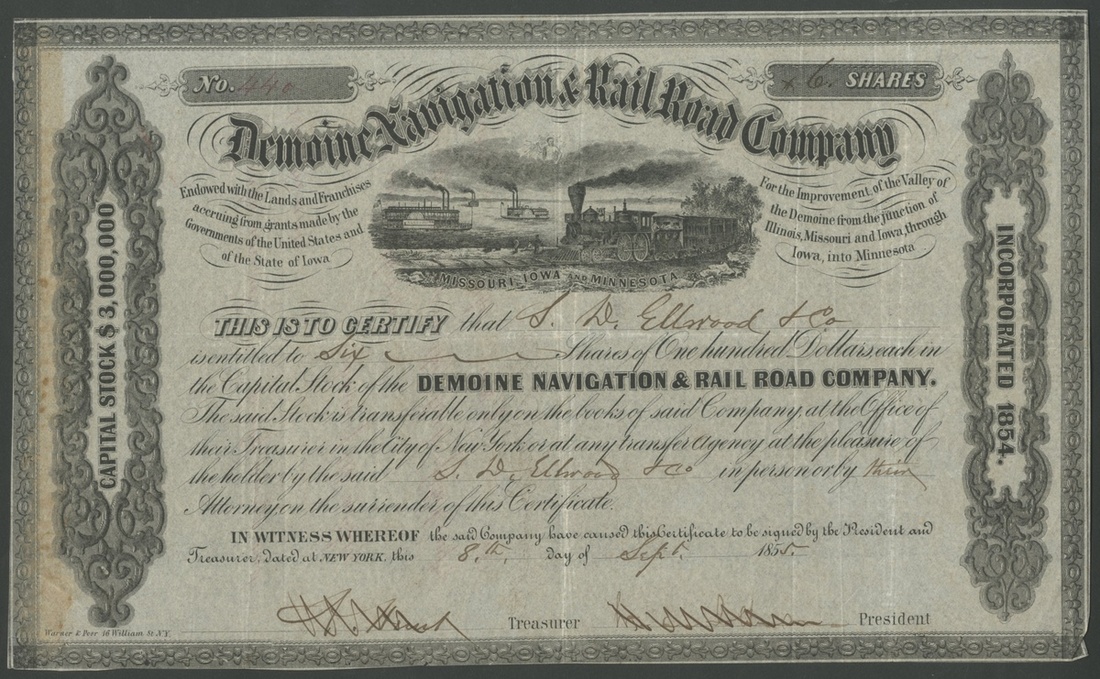 No. 440
6. SHARES
Demoine Navigation & Rail Road Company
Endowed with the Lands and Franchises
accruing from grants made by the
Governments of the United States and
of the State of Iowa
For the Improvement of the Valley of
the Demoine from the junction of
Illinois, Missouri and Iowa, through
Iowa, into Minnesota
MISSOURI, IOWA AND MINNESOTA
CAPITAL STOCK $3,000,000
INCORPORATED 1854.
THIS IS TO CERTIFY that S. D. Ellwood & Co
is entitled to Six Shares of One hundred Dollars each in
the Capital Stock of the DEMOINE NAVIGATION & RAIL ROAD COMPANY.
The said Stock is transferable only on the books of said Company, at the Office of
their Treasurer in the City of New York or at any transfer Agency at the pleasure of
the holder by the said S. D. Ellwood & Co in person or by their
Attorney on the surrender of this Certificate.
IN WITNESS WHEREOF the said Company have caused this Certificate to be signed by the President and
Treasurer, dated at NEW YORK, this 8th day of Sept. 1855
Treasurer
President
Warner & Peer 16 William St. N.Y.